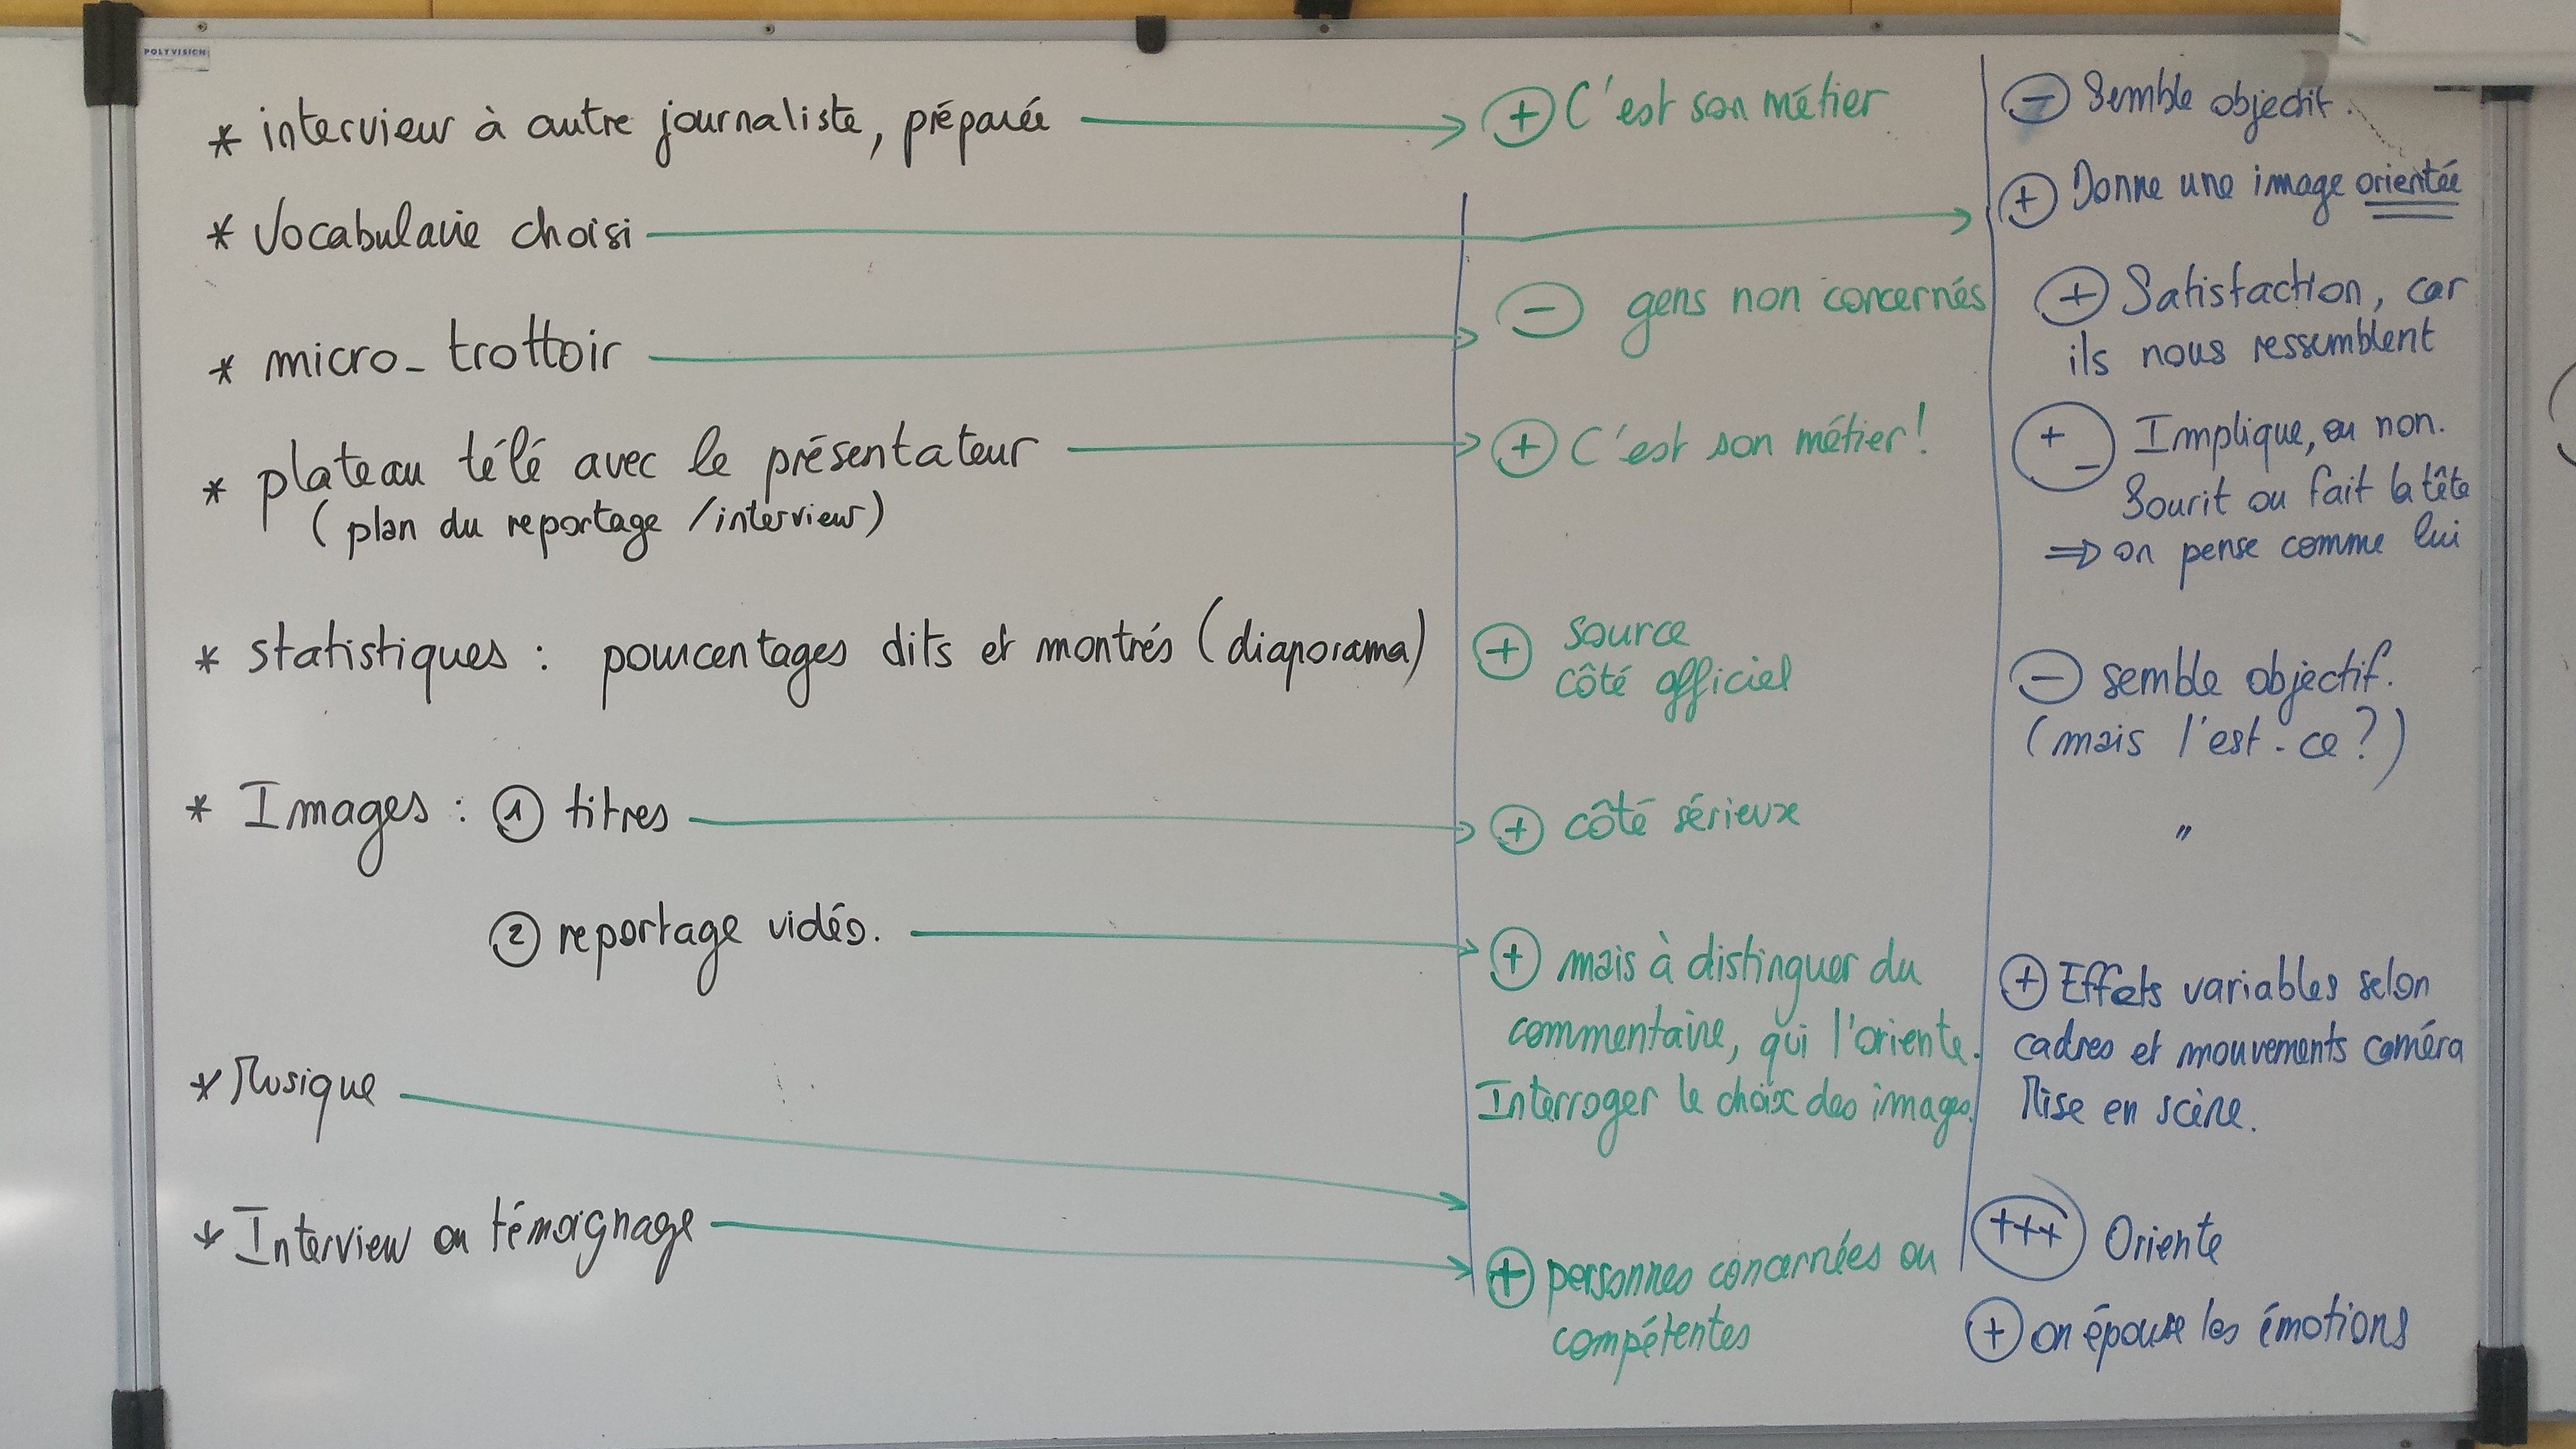 POLYVISION
* interview à autre journaliste, préparée
+ C'est son métier
- Semble objectif.
* Vocabulaire choisi
+ Donne une image orientée
* micro-trottoir
- gens non concernés
+ Satisfaction, car
ils nous ressemblent
* plateau télé avec le présentateur
(plan du reportage / interview)
+ C'est son métier!
+ - Implique, ou non.
Sourit ou fait la tête
⇒ on pense comme lui
* statistiques : pourcentages dits et montrés (diaporama)
+ source
côté officiel
- semble objectif.
(mais l'est-ce?)
* Images : ① titres
+ côté sérieux
"
② reportage vidéo.
+ mais à distinguer du
commentaire, qui l'oriente.
Interroger le choix des images.
+ Effets variables selon
cadres et mouvements caméra
Mise en scène.
* Musique
+++ Oriente
* Interview ou témoignage
+ personnes concernées ou
compétentes
+ on épouse les émotions